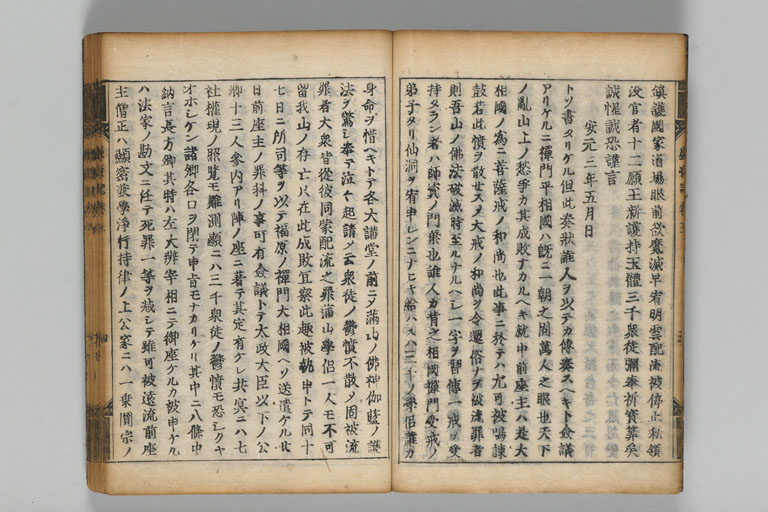 鎮護國家道場眼前欲魔滅早宥明雲配流被停止私領
没官者十二願王新護持玉體三千衆徒濔奉祈寶筭矣
誠惶誠恐謹言
安元三年五月日
トソ書タリケル但此奏狀誰人ヲ以テカ傳奏スヘキト僉議
アリケルニ禪門平相國ハ既ニ一朝之固萬人之眼也天下
ノ亂山上ノ愁爭カ其成敗ナカルヘキ就中前座主ハ是大
相國ノ爲ニ菩薩戒ノ和尚也此事ニ於テハ尤可被鳴諫
鼓若此憤ヲ散セスメ大戒ノ和尚ヲ令還俗ナヲ被流罪者
則吾山ノ佛法破滅時至ルナルヘシ一字ヲ習傳一戒ヲ受
持タラン者ハ師資ノ門葉也誰人カ背之相國禪門受戒ノ
弟子タリ仙洞ヲ宥申レンニナトヤ給ハスハ三千ノ學侶誰カ
身命ヲ惜ヘキトテ各大講堂ノ前ニテ滿山ノ佛神伽藍ノ護
法ヲ驚シ奉テ泣々起請メ云衆徒ノ鬱憤不散ノ固被流
罪者大衆皆從彼同蒙配流之罪滿山學侶一人モ不可
留我山ノ存亡只在此成敗宜察此趣被執申トテ同十
七日ニ所司等ヲ以テ福原ノ禪門大相國ヘソ送遣ケル廿
日前座主ノ罪科ノ事可有僉議トテ太政大臣以下ノ公
卿十三人參内アリ陣ノ座ニ著テ其定有ケレ共冥ニハ七
社權現ノ照覽モ難測顯ニハ三千衆徒ノ鬱憤モ恐シクヤ
オホシケン諸卿各口ヲ閉テ申旨モナカリケリ其中ニ八條中
納言長方卿其時ハ左大辨宰相ニテ御座ケルカ被申ケル
ハ法家ノ勘文ニ任テ死罪一等ヲ減シテ雖可被遠流前座
主僧正ハ顯密兼學淨行持律ノ上公家ニハ一乘圓宗ノ